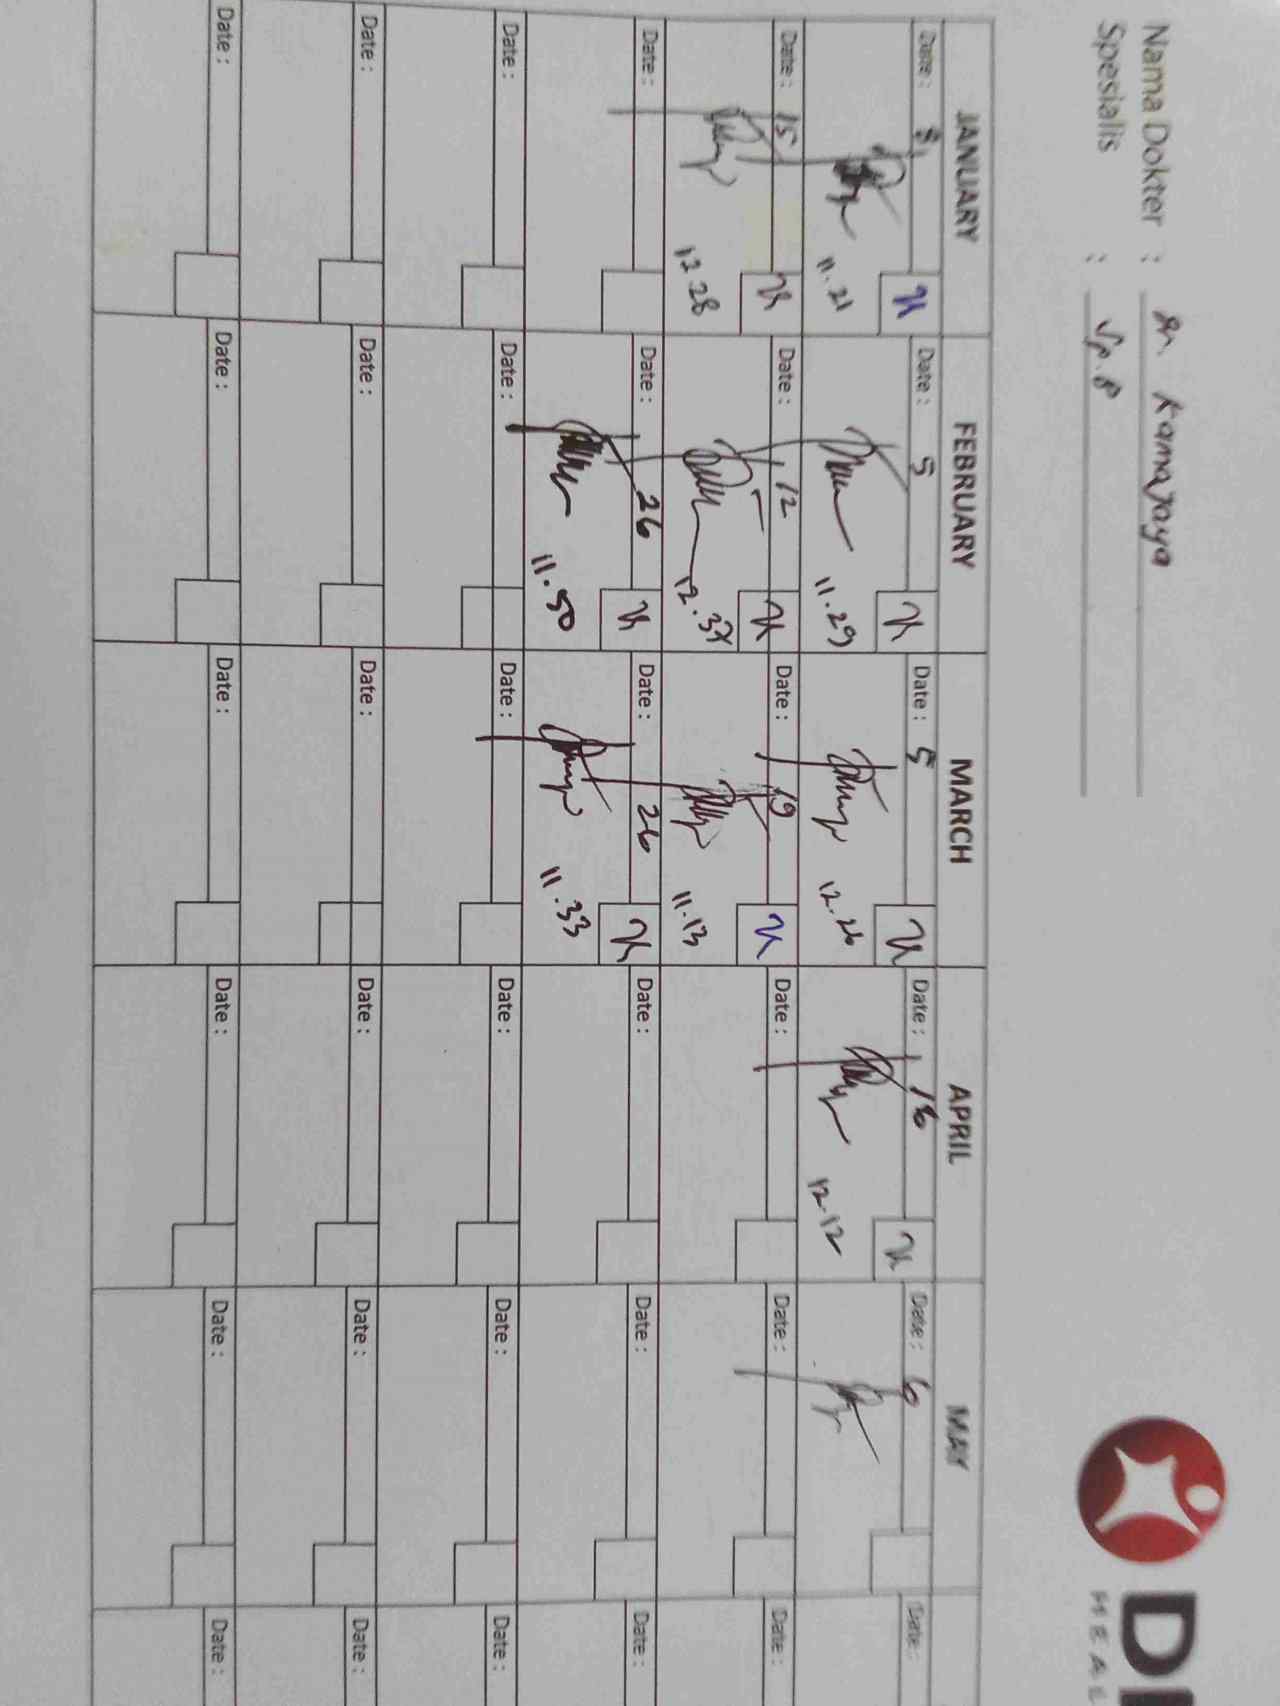 Nama Dokter : dr. Kamajaya
Spesialis : Sp.B
JANUARY FEBRUARY MARCH APRIL MAY
Date : 8 Date : 5 Date : 5 Date : 16 Date : 6 Date :
11.21 11.29 12.26 12.12
Date : 15 Date : 12 Date : 19 Date : Date : Date :
12.28 12.37 11.13
Date : Date : 26 Date : 26 Date : Date : Date :
11.50 11.33
Date : Date : Date : Date : Date : Date :
Date : Date : Date : Date : Date : Date :
Date : Date : Date : Date : Date : Date :